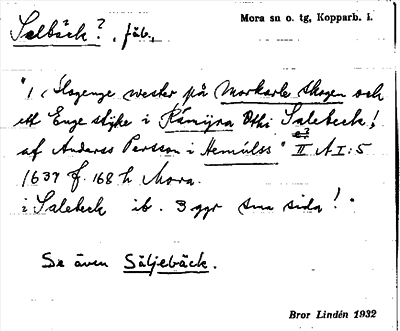 Salbäck?, fäb.
Mora sn o. tg, Kopparb. l.
"1 Slogenge wester på Morkarle skogen och
ett Enge stÿke i Rÿmÿra Othi Salebeck!
e?
af Anders Persson i Hemúlss" II A I:5
1637 f. 168 h Mora.
i Salebeck ib. 3 ggr sma sida! "
Se även Säljebäck.
Bror Lindén 1932